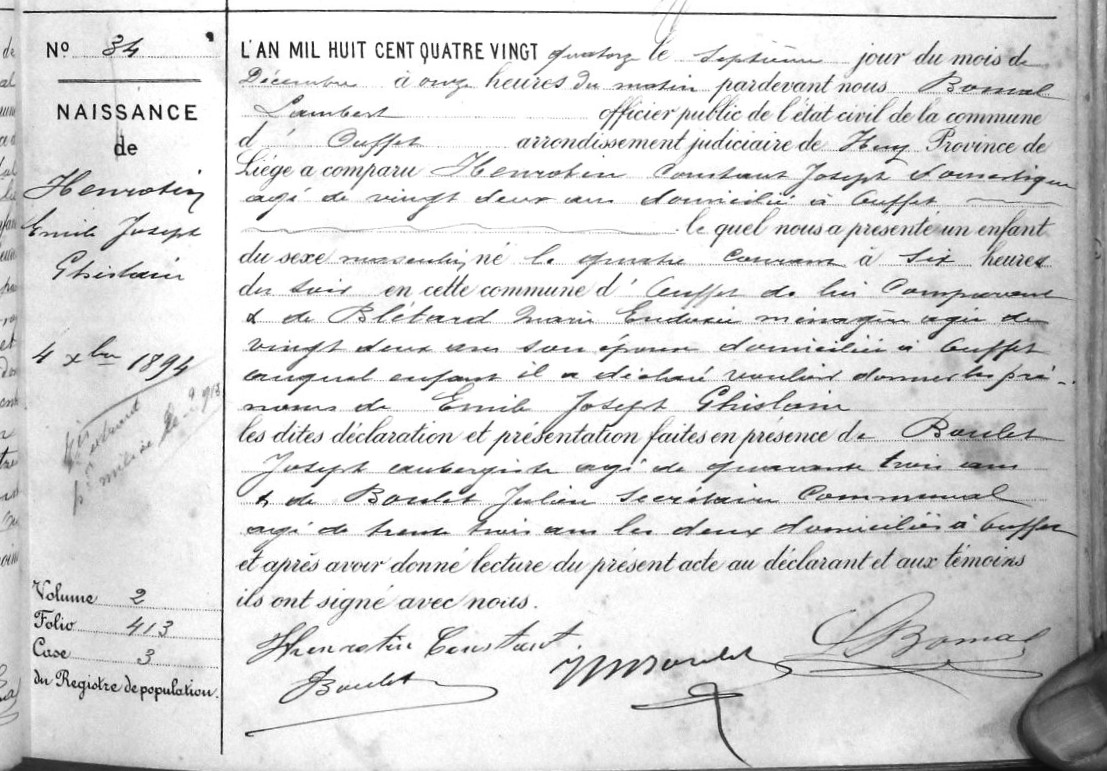 No 34
NAISSANCE
de
Henrotin
Emile Joseph
Ghislain
4 xbre 1894
Volume 2
Folio 413
Case 3
du Registre de population.
L'AN MIL HUIT CENT QUATRE VINGT quatorze le septième jour du mois de
Décembre à onze heures du matin pardevant nous Bomal
Lambert officier public de l'état civil de la commune
d' Ouffet arrondissement judiciaire de Huy Province de
Liége a comparu Henrotin Constant Joseph domestique
agé de vingt deux ans domicilié à Ouffet
le quel nous a présenté un enfant
du sexe masculin né le quatre courant à six heures
du soir en cette commune d' Ouffet de lui Comparant
& de Blétard Marie ménagère agée de
vingt deux ans son épouse domiciliée à Ouffet
auquel enfant il a déclaré vouloir donner les pré-
noms de Emile Joseph Ghislain
les dites déclaration et présentation faites en présence de Boulet
Joseph aubergiste agé de quarante trois ans
& de Boulet Julien Secrétaire Communal
agé de trente trois ans les deux domiciliés à Ouffet
et après avoir donné lecture du présent acte au déclarant et aux témoins
ils ont signé avec nous.
Henrotin Constant
Boulet
Boulet
L Bomal